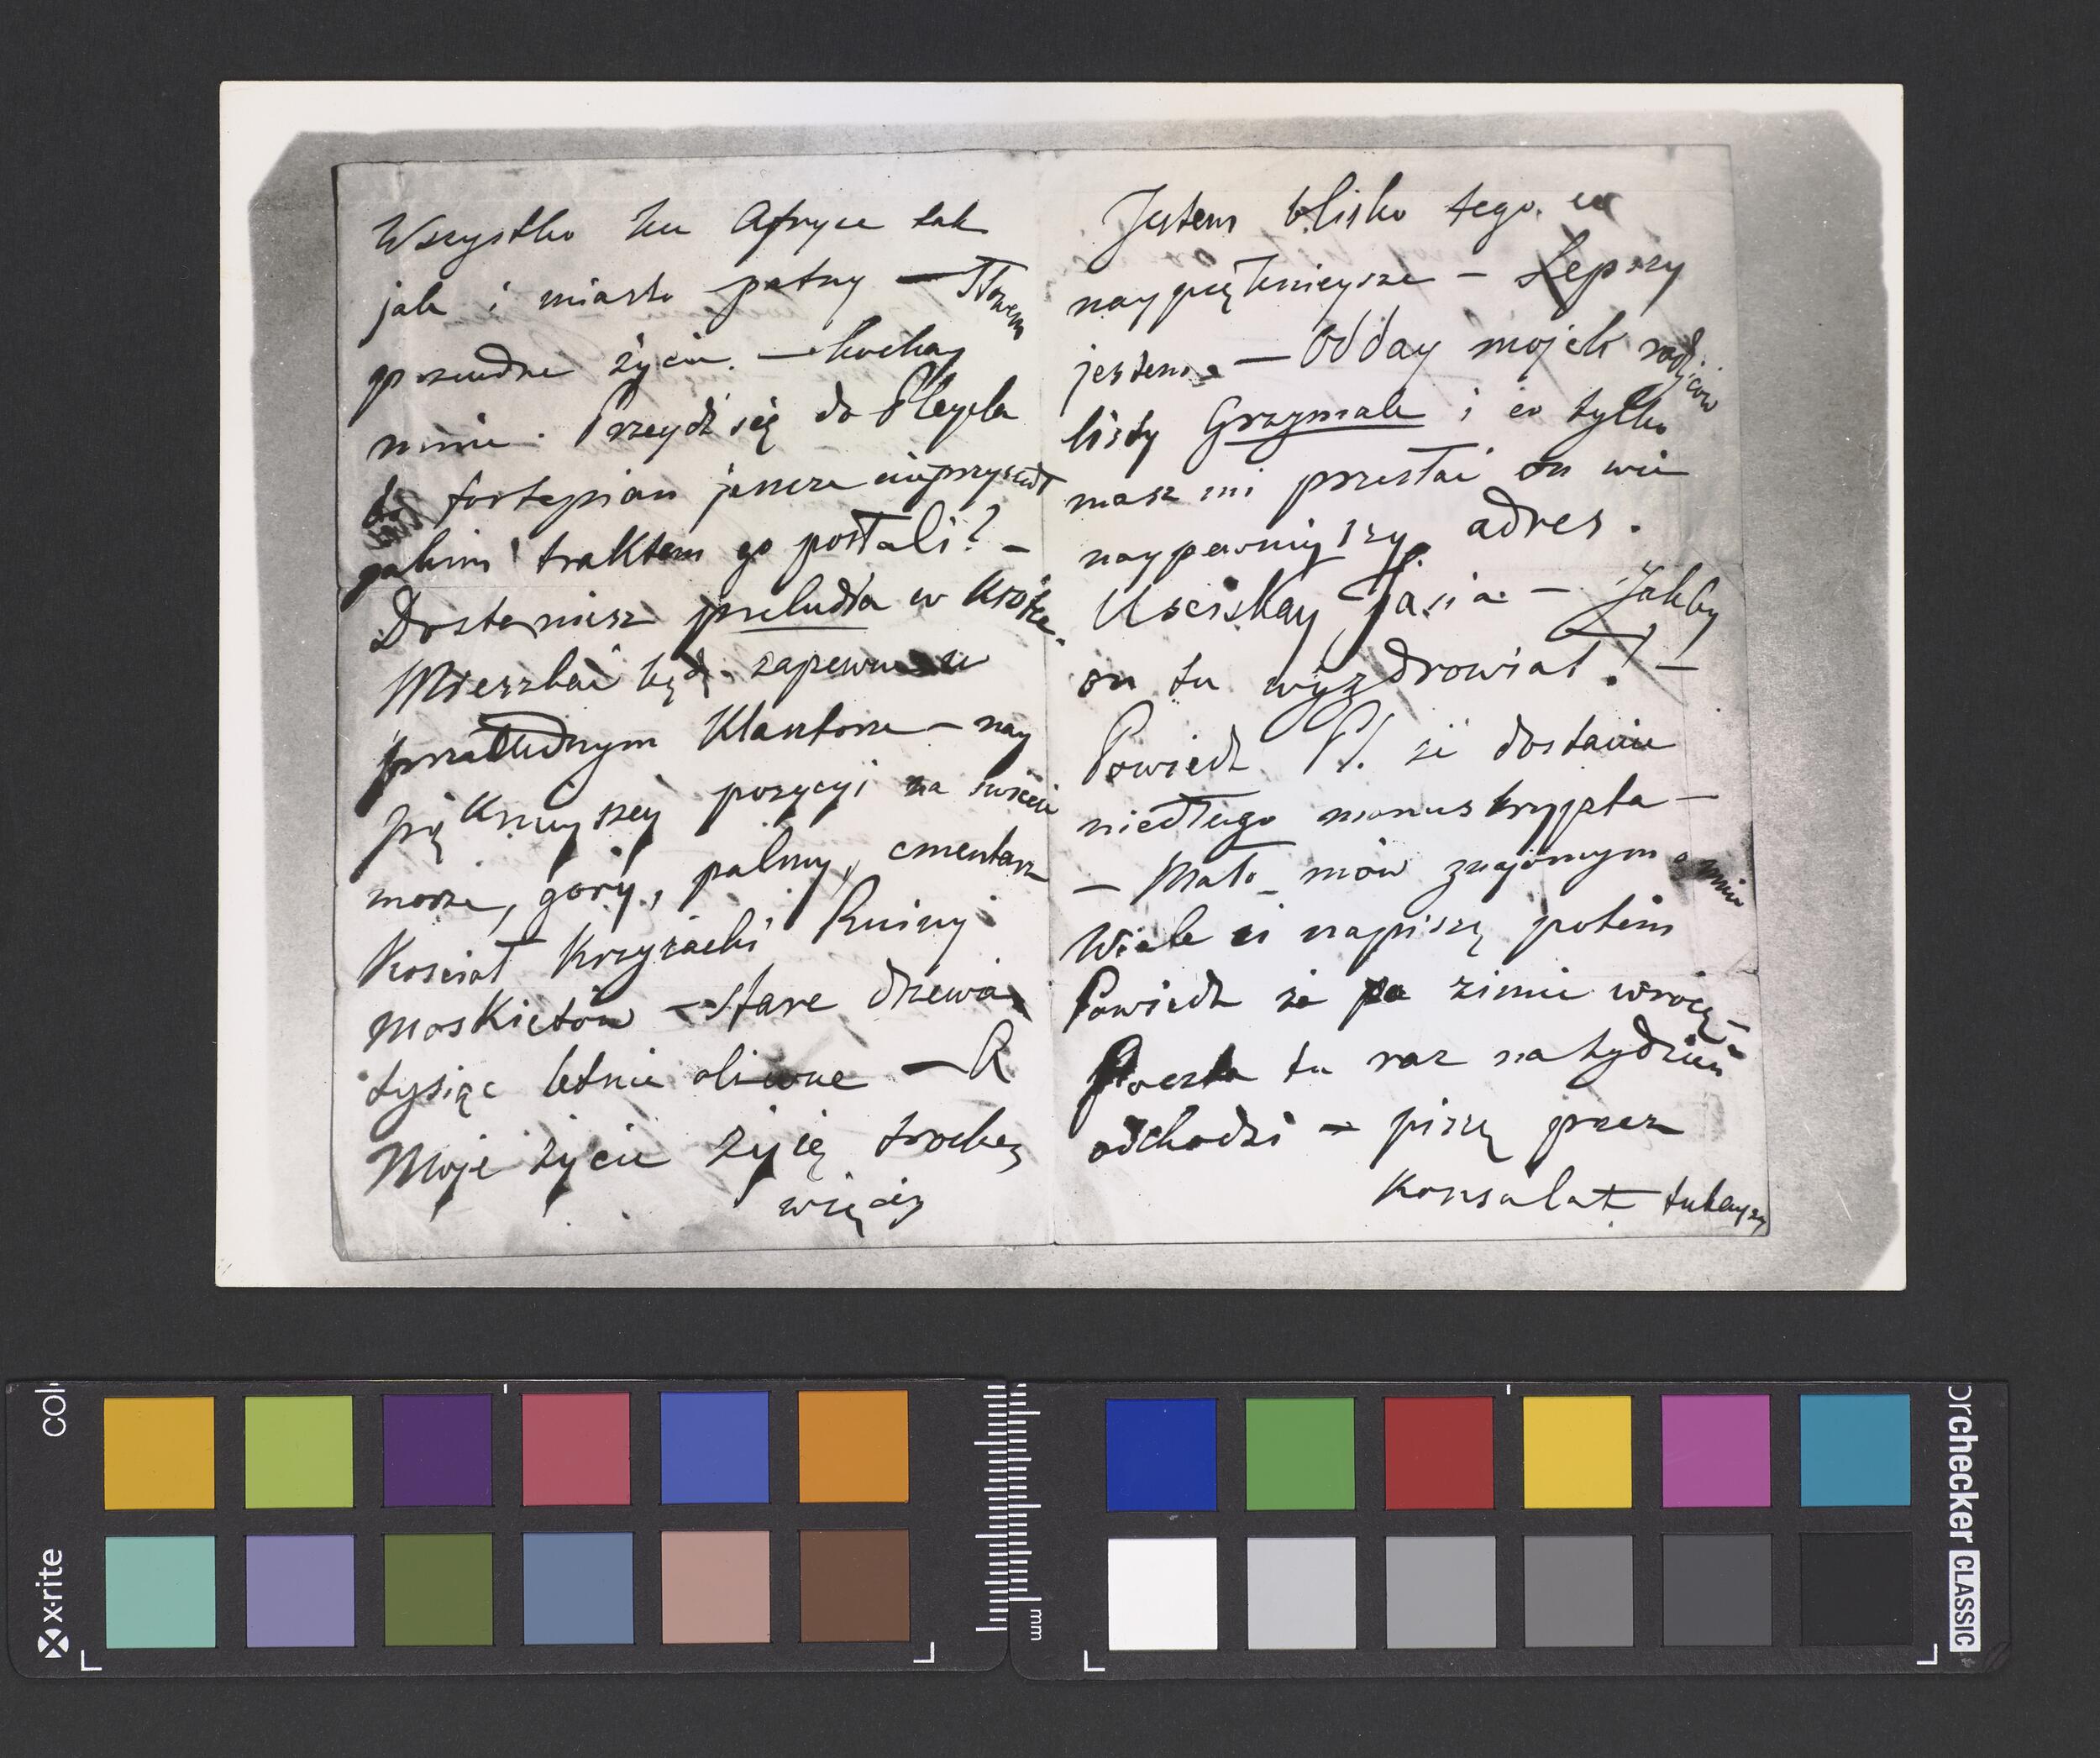 Wszystko ku Afryce tak
jak i miasto patrzy — Słowem
przecudne życie. — Kochaj
mnie. Przeydź się do Pleyela
bo fortepian jeszcze nieprzyszedł
jakim traktem go posłali? —
Dostaniesz preludia w krótce.
Mieszkać będę zapewne w
przecudnym klasztorze — nay
piękniejszey pozycyi na świecie
morze, gory, palmy, cmentarz
Kościoł krzyżacki Ruiny
moskietów — stare drzewa
tysiąc letnie oliwne — A
Moje życie żyię trochę
więcey
Jestem blisko tego co
naypiękniejsze — Lepszy
jestem — Odday moich rodziców
listy Grzymale i co tylko
masz mi przesłać on wie
naypewniejszy adres.
Usciskay Jasia — Jakby
on tu wyzdrowiał! —
Powiedz Pl. że dostanie
niedługo manuskrypta —
— Mało mów znajomym o mnie
Wiele ci napiszę potem
Powiedz że po zimie wrocę —
Poczta tu raz na tydzień
odchodzi — piszę przez
Konsulat tutayszy
x-rite
colorchecker CLASSIC
mm